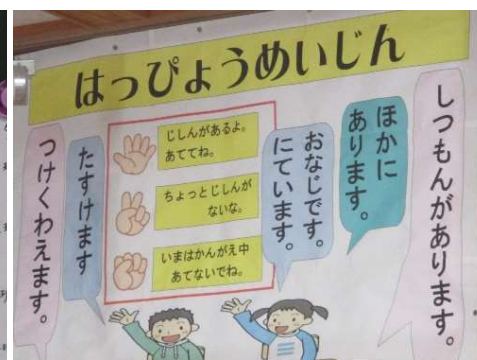 はっぴょうめいじん
しつもんがあります。
ほかに
あります。
おなじです。
にています。
じしんがあるよ。
あててね。
ちょっとじしんが
ないな。
いまはかんがえ中
あてないでね。
たすけます
つけくわえます。